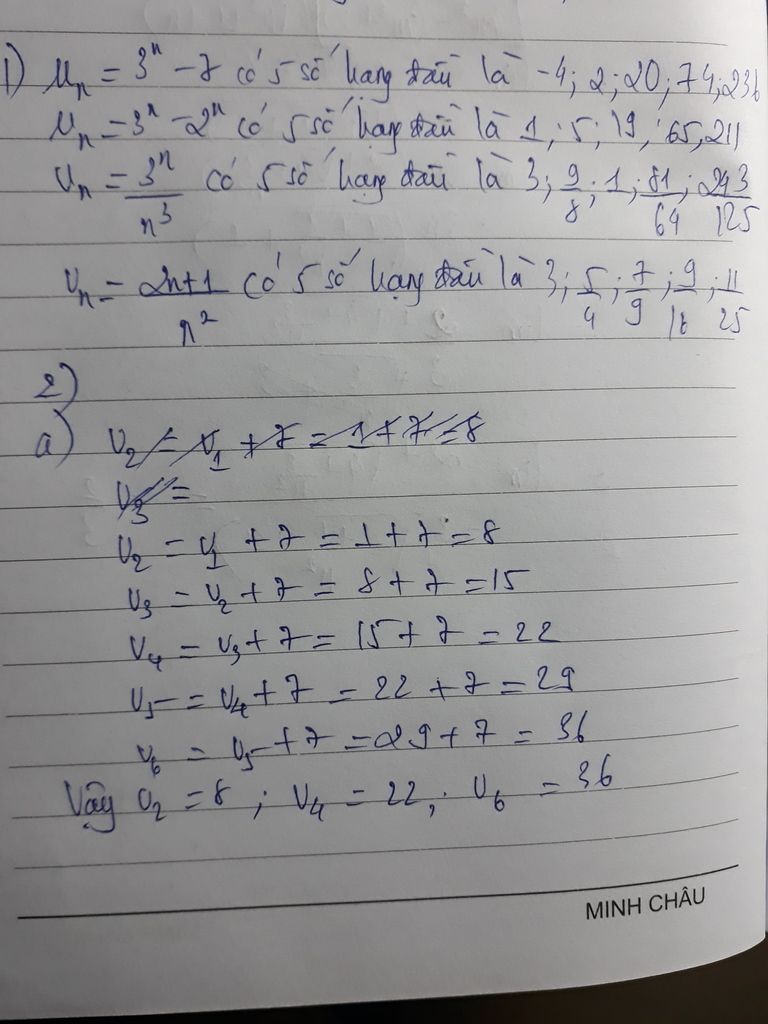 1) Uₙ = 3ⁿ - 7 có 5 số hạng đầu là -4; 2; 20; 74; 236
Uₙ = 3ⁿ - 2ⁿ có 5 số hạng đầu là 1; 5; 19; 65; 211
Uₙ = 3ⁿ/n³ có 5 số hạng đầu là 3; 9/8; 1; 81/64; 243/125
Uₙ = 2n+1/n² có 5 số hạng đầu là 3; 5/4; 7/9; 9/16; 11/25
2)
a) U₂ = U₁ + 7 = 1 + 7 = 8
U₃ =
U₂ = U₁ + 7 = 1 + 7 = 8
U₃ = U₂ + 7 = 8 + 7 = 15
U₄ = U₃ + 7 = 15 + 7 = 22
U₅ = U₄ + 7 = 22 + 7 = 29
U₆ = U₅ + 7 = 29 + 7 = 36
Vậy U₂ = 8; U₄ = 22; U₆ = 36
MINH CHÂU